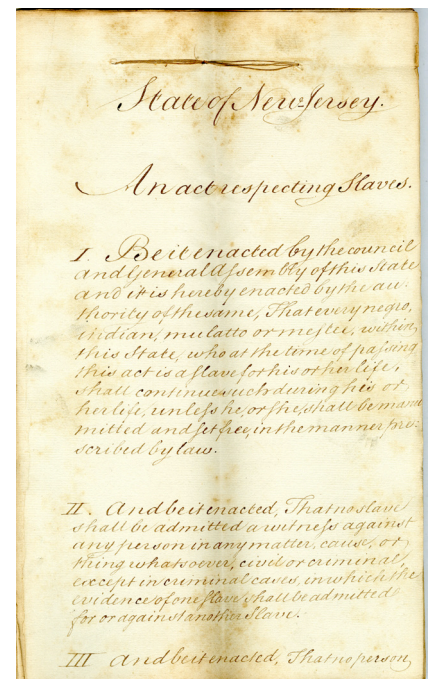 State of New-Jersey.
An act respecting Slaves.
I. Be it enacted by the council
and General Assembly of this State
and it is hereby enacted by the au-
thority of the same, That every negro,
indian, mulatto or mestee, within
this State, who at the time of passing
this act is a slave for his or her life,
shall continue such during his or
her life, unless he, or she, shall be manu
mitted and set free, in the manner pre-
scribed by law.
II. And be it enacted, That no slave
shall be admitted a witness against
any person in any matter, cause, or
thing whatsoever, civil or criminal,
except in criminal cases, in which the
evidence of one slave shall be admitted
for or against another Slave.
III And be it enacted, That no person